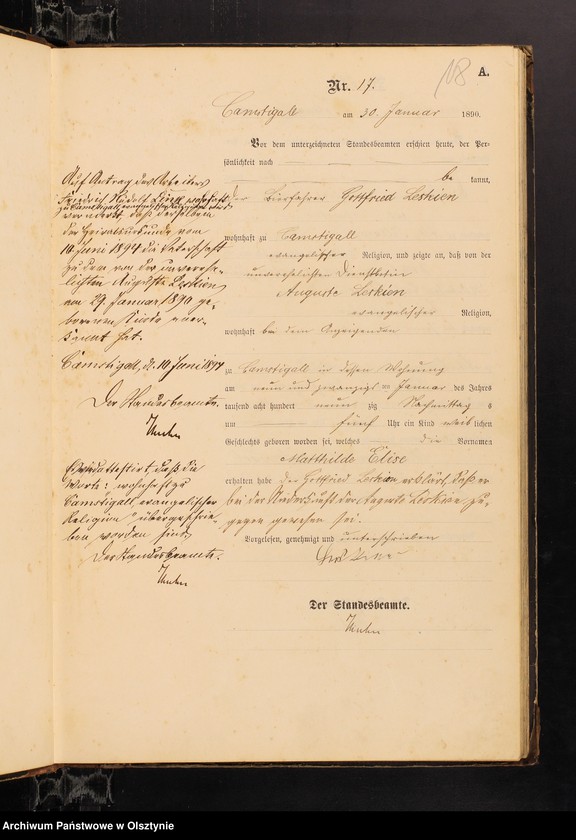 108 A.
Nr. 17.
Camstigall am 30. Januar 1890.
Vor dem unterzeichneten Standesbeamten erschien heute, der Per-
sönlichkeit nach
be kannt,
der Gottfried Leskien
wohnhaft zu Camstigall
evangelischer Religion, und zeigte an, daß von der
unverehelichten Dienstbotin
Auguste Leskien
evangelischer Religion,
wohnhaft bei dem Anzeigenden
zu Camstigall in dessen Wohnung
am neun und zwanzigsten Januar des Jahres
tausend acht hundert neunzig Nachmittags
um fünf Uhr ein Kind weiblichen
Geschlechts geboren worden sei, welches die Vornamen
Matthilde Elise
erhalten habe. Der Gottfried Leskien erklärt, daß er
bei der Niederkunft der Auguste Leskien zu-
gegen gewesen sei.
Vorgelesen, genehmigt und unterschrieben
Der Standesbeamte.
Auf Antrag des Arbeiters
Friedrich Rudolf wohnhaft
zu Camstigall, evangelischer Religion wird
vermerkt, daß derselbe in
der Heiratsurkunde vom
10 Juni 1894 die Vaterschaft
zu dem von der unverehe-
lichten Auguste Leskien
am 29. Januar 1890 ge-
borenen Kinde aner-
kannt hat.
Camstigall, d. 10 Juni 1894
Der Standesbeamte.
daß die
Worte: wohnhaft zu
Camstigall, evangelischer
Religion "übergeschrie-
ben worden sind.
Der Standesbeamte.
Archiwum Państwowe w Olsztynie